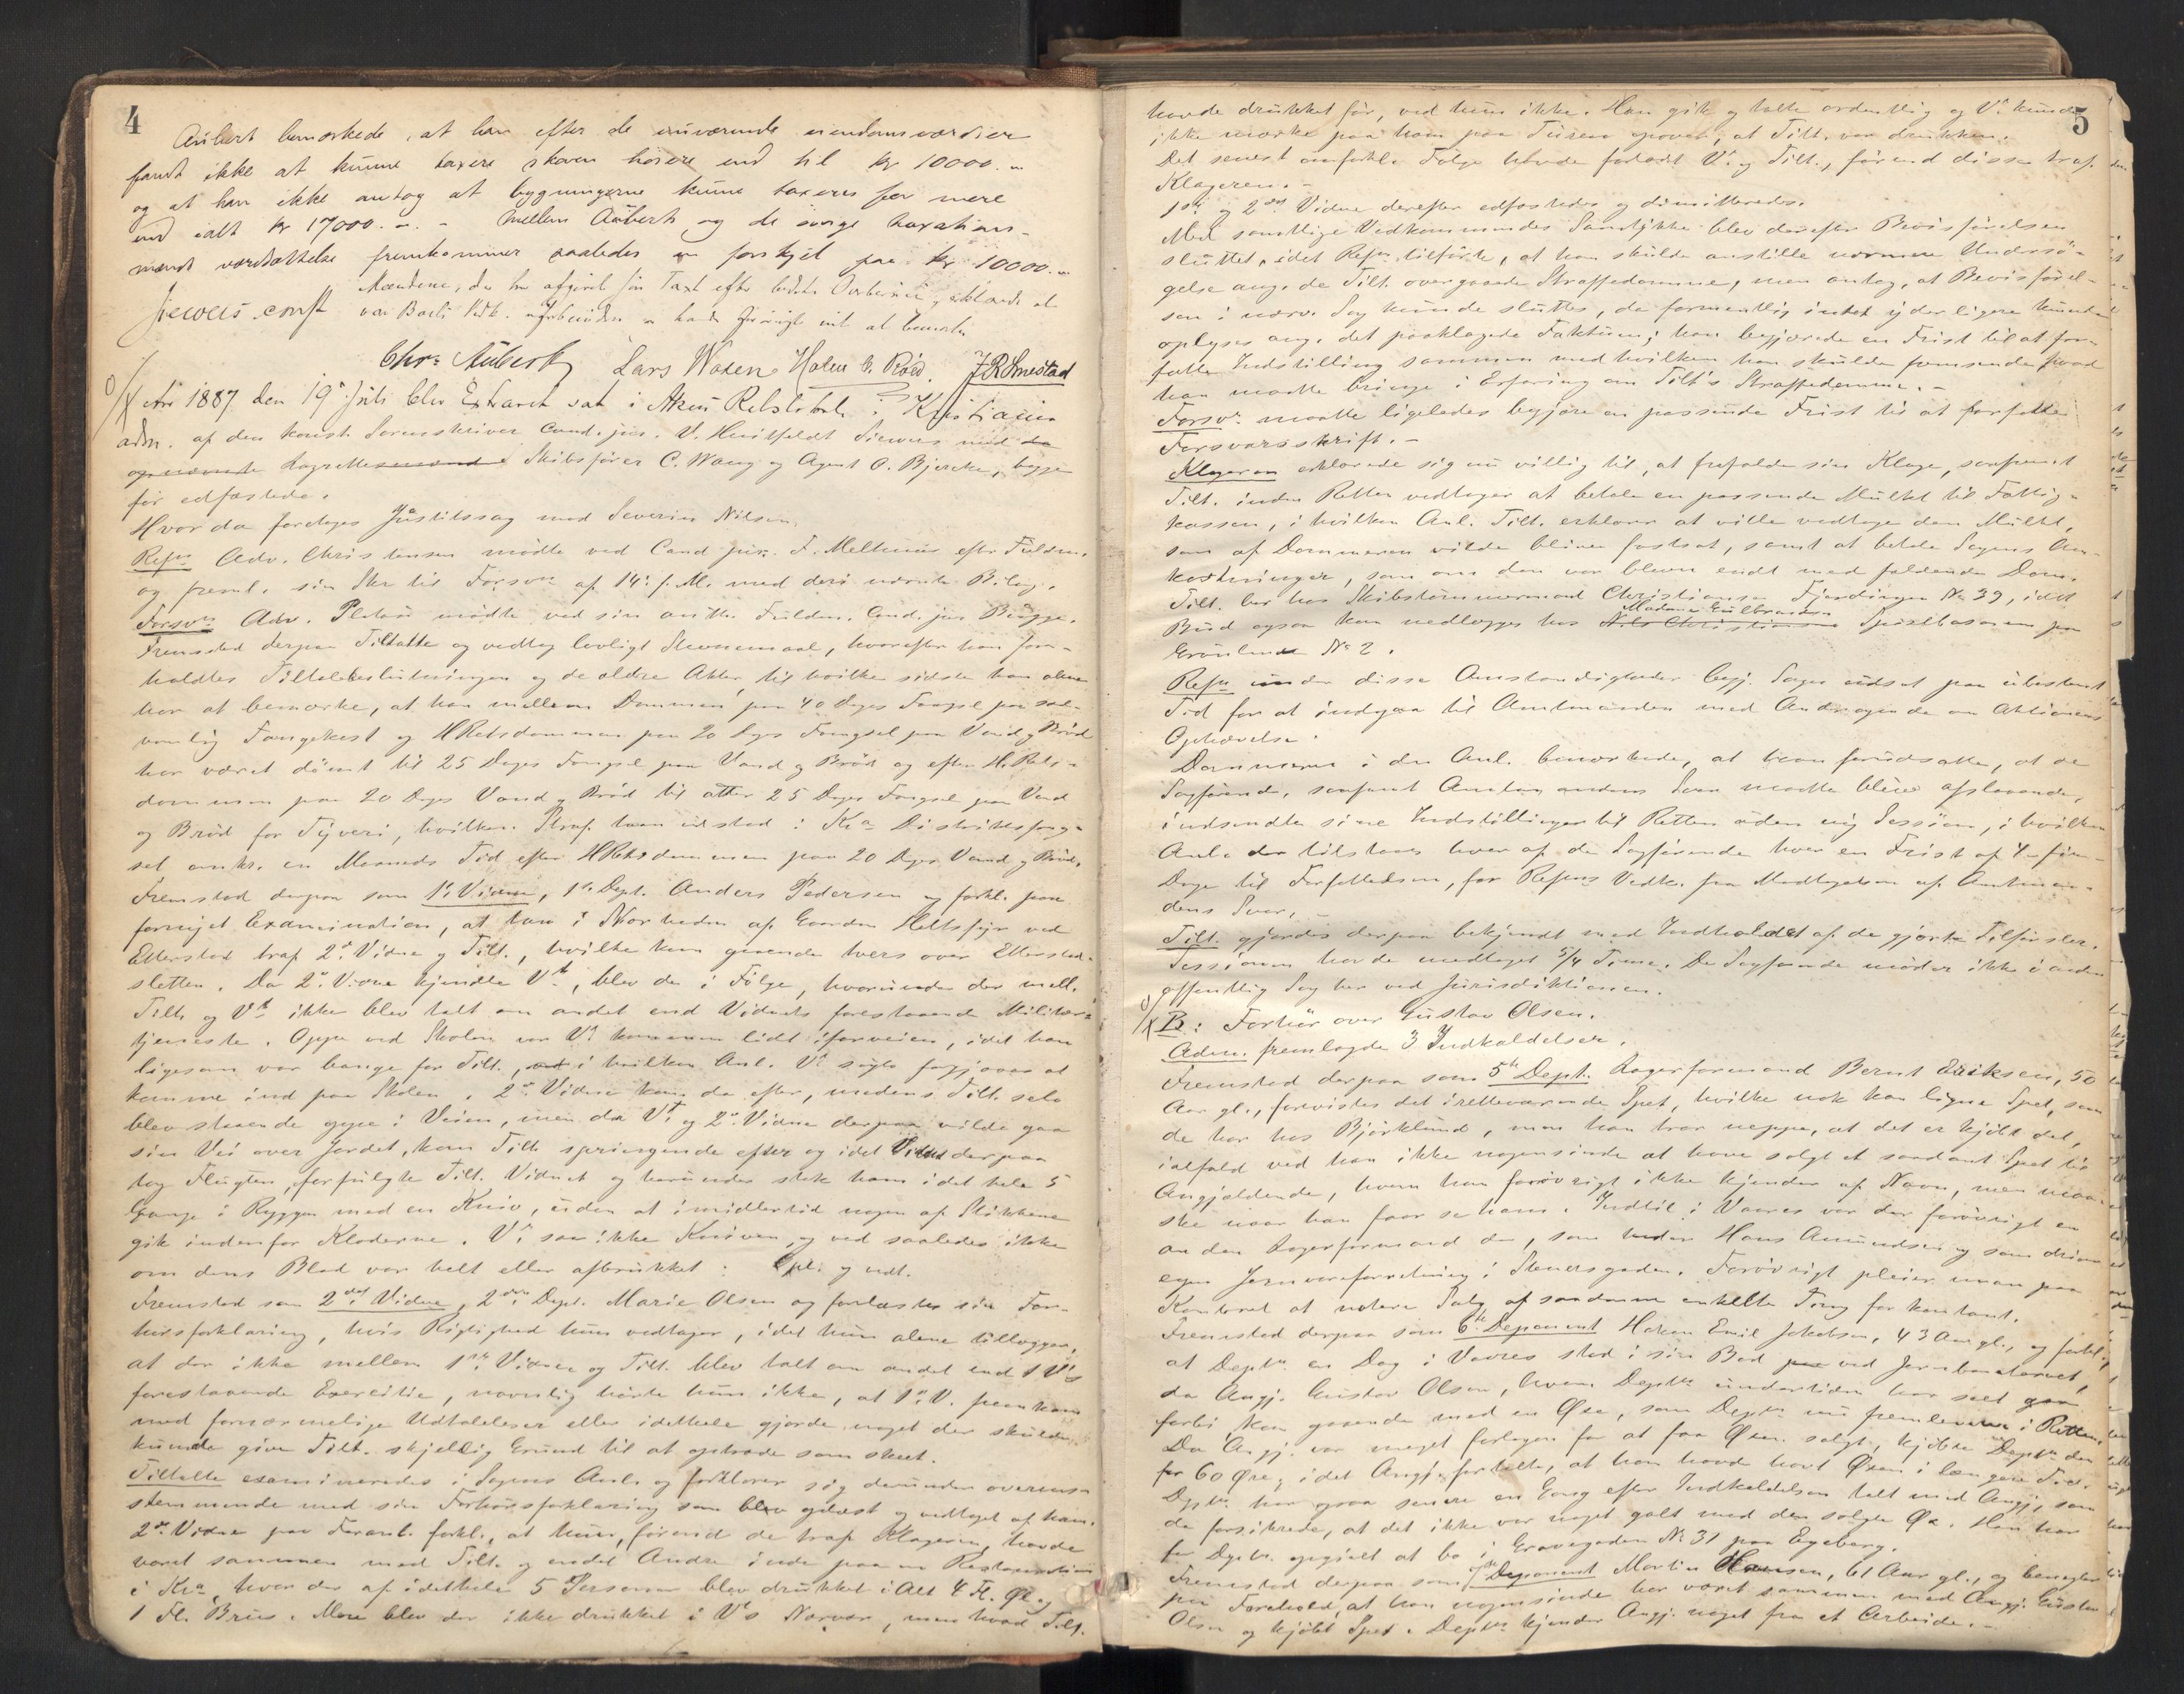 4
Aubert bemærkede, at han efter de nuværende eiendomsværdier
fandt ikke at kunne taxere skoven höiere end til kr 10000.
og at han ikke antog at bygningerne kunne taxeres for mere
end ialt kr 17000. - Mellem Aubert og de övrige taxations-
mænds værdsættelse fremkommer saaledes en forskjel paa kr 10000.
Mændene, der har afgivet sin Taxt efter bedste Overbevisning, erklærede at
Siewers const.
Chr. Aubert Lars Waxen Halvor O. Röed. J R Smestad
Aar 1887 den 19 Juli blev Extraret sat i Akers Retslokale i Kristiania
adm. af den konst. Sorenskriver Cand. jur. V. Huitfeldt Siewers med de
opnævnte Lagrettesmænd Skibsfører C. Waag og Agent O. Bjercke, begge
før edfæstede.
Hvor da foretoges Justitssag mod Severin Nilsen.
Refn Adv. Christensen mødte ved Cand jur. F. Melthuus efter Fuldm.
og freml. sin Skr til Forsvn af 14. f. M. med deri nævnte Bilag.
Forsvn Adv. Platou mødte ved sin anthr. Fuldm. Cand. jur Brügge.
Fremstod derpaa Tiltalte og vedtog lovligt Stevnemaal, hvorefter han fore-
holdtes Tiltalebeslutningen og de ældre Akter, til hvilke sidste han alene
har at bemærke, at han mellem Dommen paa 40 Dages Fængsel paa sæd-
vanlig Fangekost og HRetsdommen paa 20 Dages Fængsel paa Vand og Brød
har været dömt til 25 Dages Fængsel paa Vand og Brød og efter H. Rets-
dommen paa 20 Dages Vand og Brød til atter 25 Dages Fængsel paa Vand
og Brød for Tyveri, hvilken Straf han udstod i Kra Distriktsfæng-
sel omkr. en Maaneds Tid efter HRetsdommen paa 20 Dages Vand og Brød.
Fremstod derpaa som 1ste Vidne, 1ste Dept. Anders Pedersen og forkl. paa
fornyet Examination, at han i Nærheden af Gaarden Heltsfyr ved
Etterstad traf 2det Vidne og Tilt., hvilke kom gaaende tvers over Etterstad-
sletten. Da 2det Vidne kjendte Vt, blev de i Følge, hvorunder der mell.
Tilt. og Vt ikke blev talt om andet end Vidnets forestaaende Militær-
tjeneste. Oppe ved Skolen var Vt kommen lidt iforveien, idet han
ligesom var bange for Tilt., i hvilken Anl. Vt søgte forgjæves at
komme ind paa Skolen. 2det Vidne kom da efter, medens Tilt. selv
blev staaende oppe i Veien, men da Vt og 2det Vidne derpaa vilde gaa
sin Vei over Jordet, kom Tilt. springende efter og idet Vidnet derpaa
tog Flugten, forfulgte Tilt. Vidnet og herunder stak ham i det hele 5
Gange i Ryggen med en Kniv, uden at imidlertid nogen af Stikkene
gik indenfor Klæderne. Vt saa ikke Kniven, og ved saaledes ikke
om dens Blad var helt eller afbrukket. Opl. og vedt.
Fremstod som 2det Vidne, 2den Dept. Marie Olsen og forelæstes sin For-
hørsforklaring, hvis Rigtighed hun vedtager, idet hun alene tillægger,
at der ikke mellem 1ste Vidne og Tilt. blev talt om andet end 1 Vs
forestaaende Exercitie, navnlig hørte hun ikke, at 1ste V. fremkom
med fornærmelige Udtalelser eller idethele gjorde noget der skulde
kunde give Tilt. skjellig Grund til at optræde som skeet.
Tiltalte examineredes i Sagens Anl. og forklarer sig derunder overens-
stemmende med sin Forhørsforklaring som blev oplæst og vedtaget af ham.
2det Vidne paa Foranl. forkl., at hun, førend de traf Klageren, havde
været sammen med Tilt. og endel Andre inde paa en Restauration
i Kra, hvor der af idethele 5 Personer blev drukket i Alt 4 Fl. Øl og
1 Fl. Brus. Mere blev der ikke drukket i Vts Nærvær, men hvad Tilt.
5
havde drukket før, ved hun ikke. Han gik og talte ordentlig og Vt kunde
ikke mærke paa ham paa Turen opover, at Tilt. var drukken.
Det senest anførte Følge havde forladt Vt og Tilt., førend disse traf
Klageren. -
1ste og 2det Vidne derefter edfæstedes og dimitteredes.
Med samtlige Vedkommendes Samtykke blev derefter Bevisførelsen
sluttet, idet Refn tilførte, at han skulde anstille nærmere Undersø-
gelse ang. de Tilt. overgaaede Straffedomme, men antog, at Bevisførel-
sen i nærv. Sag kunde sluttes, da formentlig intet yderligere kunde
oplyses ang. det paaklagede Faktum; han begjærede en Frist til at for-
fatte Indstilling sammen med hvilken han skulde fremsende hvad
han maatte bringe i Erfaring om Tilt's Straffedomme. -
Forsvn maatte ligeledes begjære en passende Frist til at forfatte
Forsvarsskrift. -
Klageren erklærede sig nu villig til, at frafalde sin Klage, saafremt
Tilt. inden Retten vedtager at betale en passende Mulkt til Fattig-
kassen, i hvilken Anl. Tilt. erklærer at ville vedtage den Mulkt,
som af Dommeren vilde blive fastsat, samt at betale Sagens Om-
kostninger, som om den var bleven endt med fældende Dom.
Tilt. bor hos Skibstømmermand Christiansen Fjerdingen No 39, idet
Madame Gulbransen
Bud ogsaa kan nedlægges hos Nils Christiansen Spiseløkassen paa
Grönland No 2.
Refn under disse Omstændigheder begj. Sagen udsat paa ubestemt
Tid for at indgaa til Amtmanden med Andragende om Aktionens
Ophævelse.
Dommeren i den Anl. bemærkede, at han forudsatte, at de
Sagførende, saafremt Amtmandens Svar maatte blive afslaaende,
indsendte sine Indstillinger til Retten uden ny Session, i hvilken
Anl. der tilstaaes hver af de Sagførende hver en Frist af 4 - fire -
Dage til Forfattelsen, for Refns Vedk. fra Modtagelsen af Amtman-
dens Svar. -
Tilt. gjordes derpaa bekjendt med Indholdet af de gjorte Tilførsler.
Sessionen havde medtaget 5/4 Time. De Sagførende møder ikke i anden
offentlig Sag her ved Jurisdiktionen.
B: Forhør over Gustav Olsen.
Adm. fremlagde 3 Indkaldelser.
Fremstod derpaa som 5te Dept. Lagerformand Bernt Eriksen, 50
Aar gl., forevistes det iretteværende Spet, hvilke nok kan ligne Spet, som
de har hos Bjørklund, men han tror neppe, at det er kjøbt der,
ialfald ved han ikke nogensinde at have solgt et saadant Spet til
Angjældende, hvem han forøvrigt ikke kjender af Navn, men maa-
ske naar han faar se ham. Indtil i Vaares var der forøvrigt en
anden Lagerformand der, som heder Hans Amundsen og som driver
egen Jernvareforretning i Storgaden. Forøvrigt pleier man paa
Kontoret at notere Salg af saadanne enkelte Ting for kontant.
Fremstod derpaa som 6te Deponent Hakon Emil Jakobsen, 43 Aar gl., og forkl.
at Deptn en Dag i Vaares stod i sin Bod ved Jernbanetorvet,
da Angj. Gustav Olsen, hvem Deptn undertiden har seet gaa
forbi, kom gaaende med en Øxe, som Deptn nu fremleverer i Retten.
Da Angj. var meget forlegen for at faa Øxen solgt, kjøbte Deptn den
for 60 Øre, idet Angj. fortalte, at han havde havt Øxen i længere Tid.
Deptn har ogsaa senere en Gang efter Indkaldelsen talt med Angj., som
da forsikrede, at det ikke var noget galt med den solgte Øxe. Han har
for Deptn opgivet at bo i Gravegaden No 31 paa Egeberg.
Fremstod derpaa som 7de Deponent Martin Hansen, 61 Aar gl., og benegter
paa Forehold, at han nogensinde har været sammen med Angj. Gustav
Olsen og kjøbt Spet. Deptn kjender Angj. noget fra et Arbeide. -